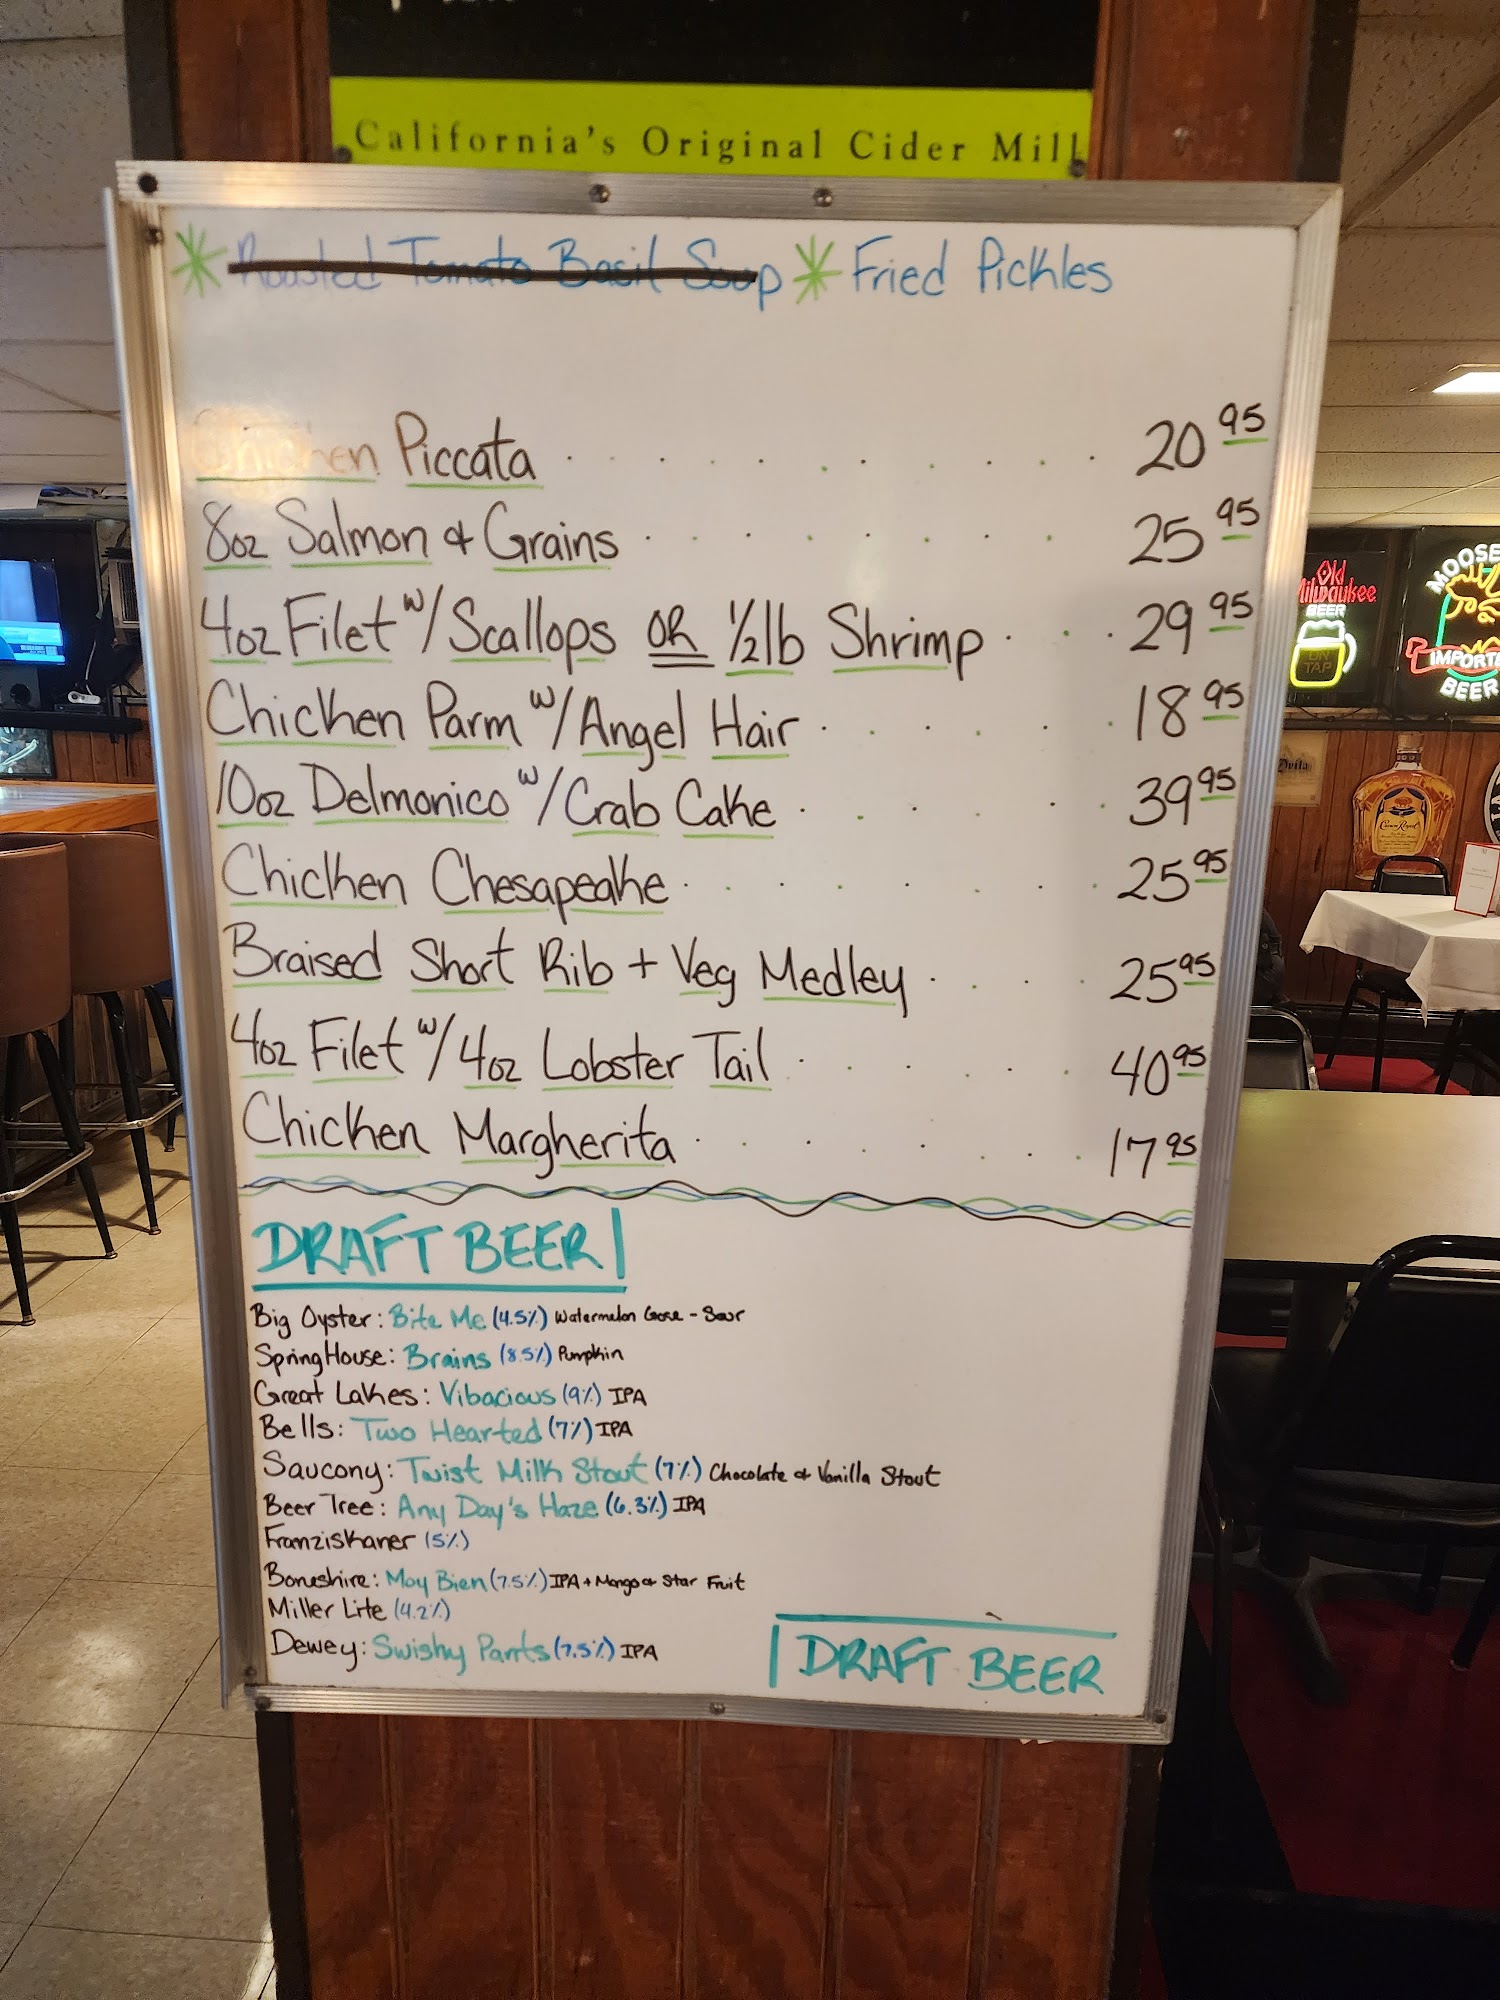 California's Original Cider Mill
Roasted Tomato Basil Soup Fried Pickles
Chicken Piccata 20 95
8oz Salmon & Grains 25 95
4oz Filet w/ Scallops OR 1/2 lb Shrimp 29 95
Chicken Parm w/ Angel Hair 18 95
10oz Delmonico w/ Crab Cake 39 95
Chicken Chesapeake 25 95
Braised Short Rib + Veg Medley 25 95
4oz Filet w/ 4oz Lobster Tail 40 95
Chicken Margherita 17 95
DRAFT BEER
Big Oyster: Bite Me (4.5%) Watermelon Gose - Sour
SpringHouse: Brains (8.5%) Pumpkin
Great Lakes: Vibacious (9%) IPA
Bells: Two Hearted (7%) IPA
Saucony: Twist Milk Stout (7%) Chocolate & Vanilla Stout
Beer Tree: Any Day's Haze (6.3%) IPA
Franziskaner (5%)
Boneshire: May Bien (7.5%) IPA + Mango & Star Fruit
Miller Lite (4.2%)
Dewey: Swishy Pants (7.5%) IPA
DRAFT BEER
Old
Milwaukee
BEER
ON
TAP
MOOSE
IMPORTE
BEER
Crown Royal